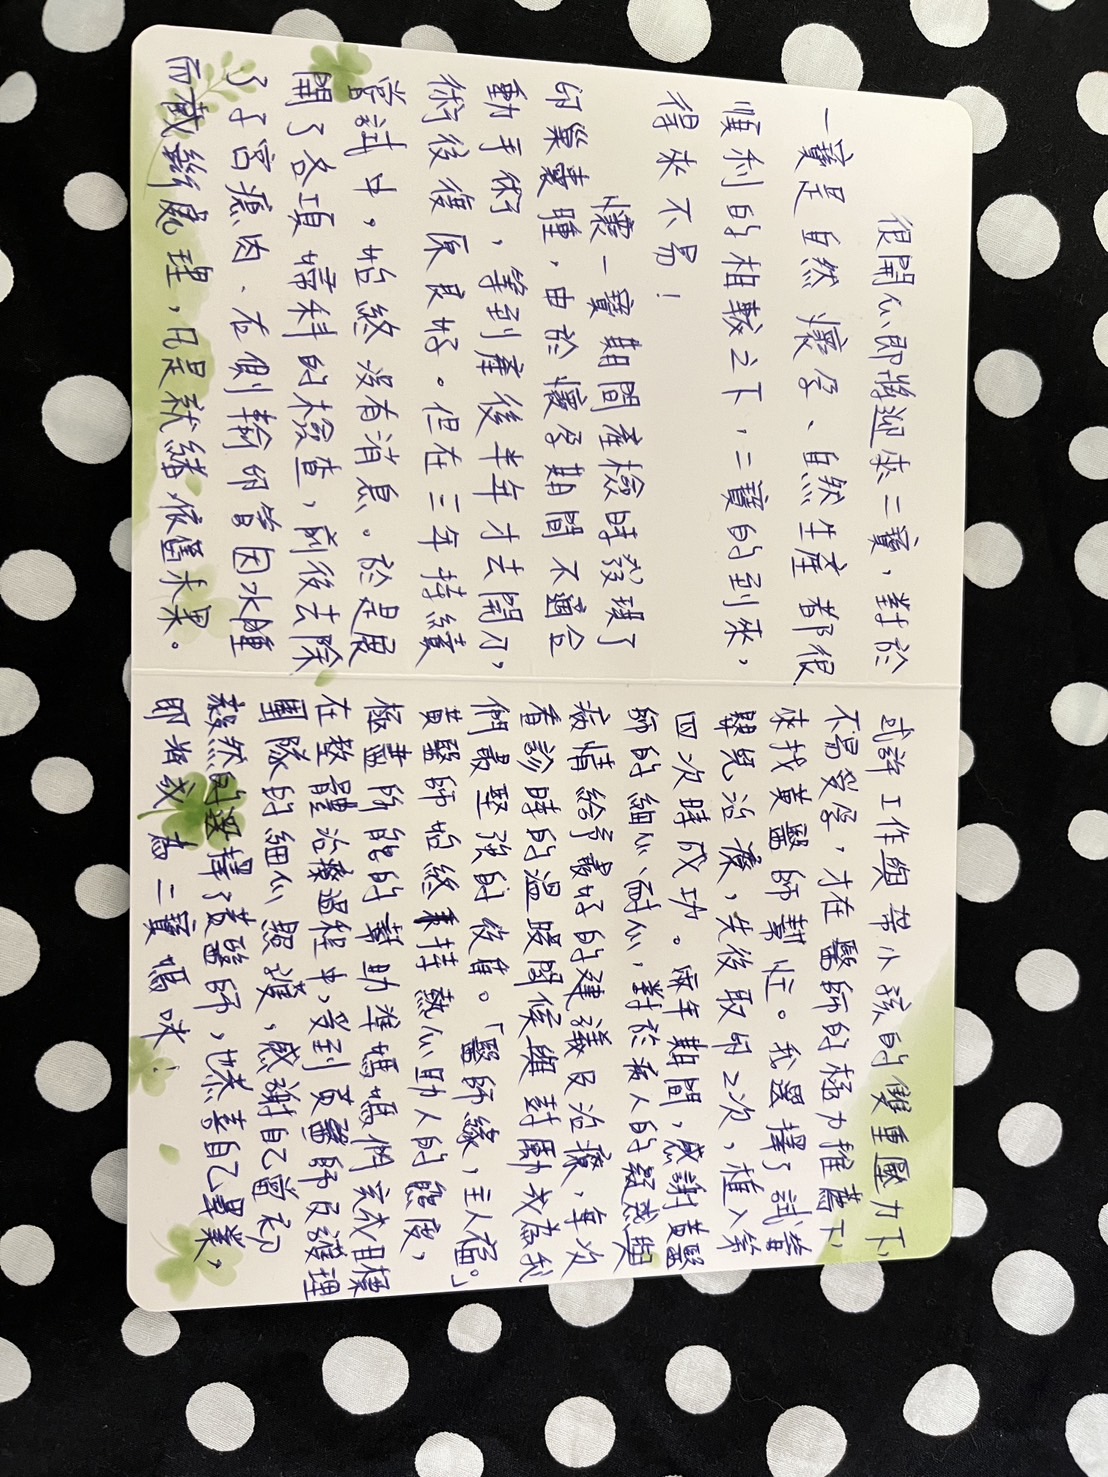 很開心即將迎來二寶，對於
一寶是自然懷孕、自然生產都很
順利的相較之下，二寶的到來，
得來不易！
懷一寶期間產檢時發現了
卵巢囊腫，由於懷孕期間不適合
動手術，等到產後半年才去開刀，
術後復原良好。但在三年持續
嘗試中，始終沒有消息。於是展
開了各項婦科的檢查，前後去除
了子宮瘜肉、右側輸卵管因水腫
而截斷處理，凡是就緒，依舊未果。
或許工作與帶小孩的雙重壓力下，
不易受孕，才在醫師的極力推薦下，
來找黃醫師幫忙。我選擇了試管
嬰兒治療，先後取卵2次，植入第
四次時成功。兩年期間，感謝黃醫
師的細心、耐心，對於病人的疑惑與
病情給予最好的建議及治療，每次
看診時的溫暖問候與鼓勵成為我
們最堅強的後盾。「醫師緣，主人福。」
黃醫師始終秉持熱心助人的態度，
極盡所能的幫助準媽媽們完成目標
在整體治療過程中，受到黃醫師及護理
團隊的細心照護，感謝自己當初
毅然的選擇了黃醫師，也恭喜自己畢業，
即將成為二寶媽咪！